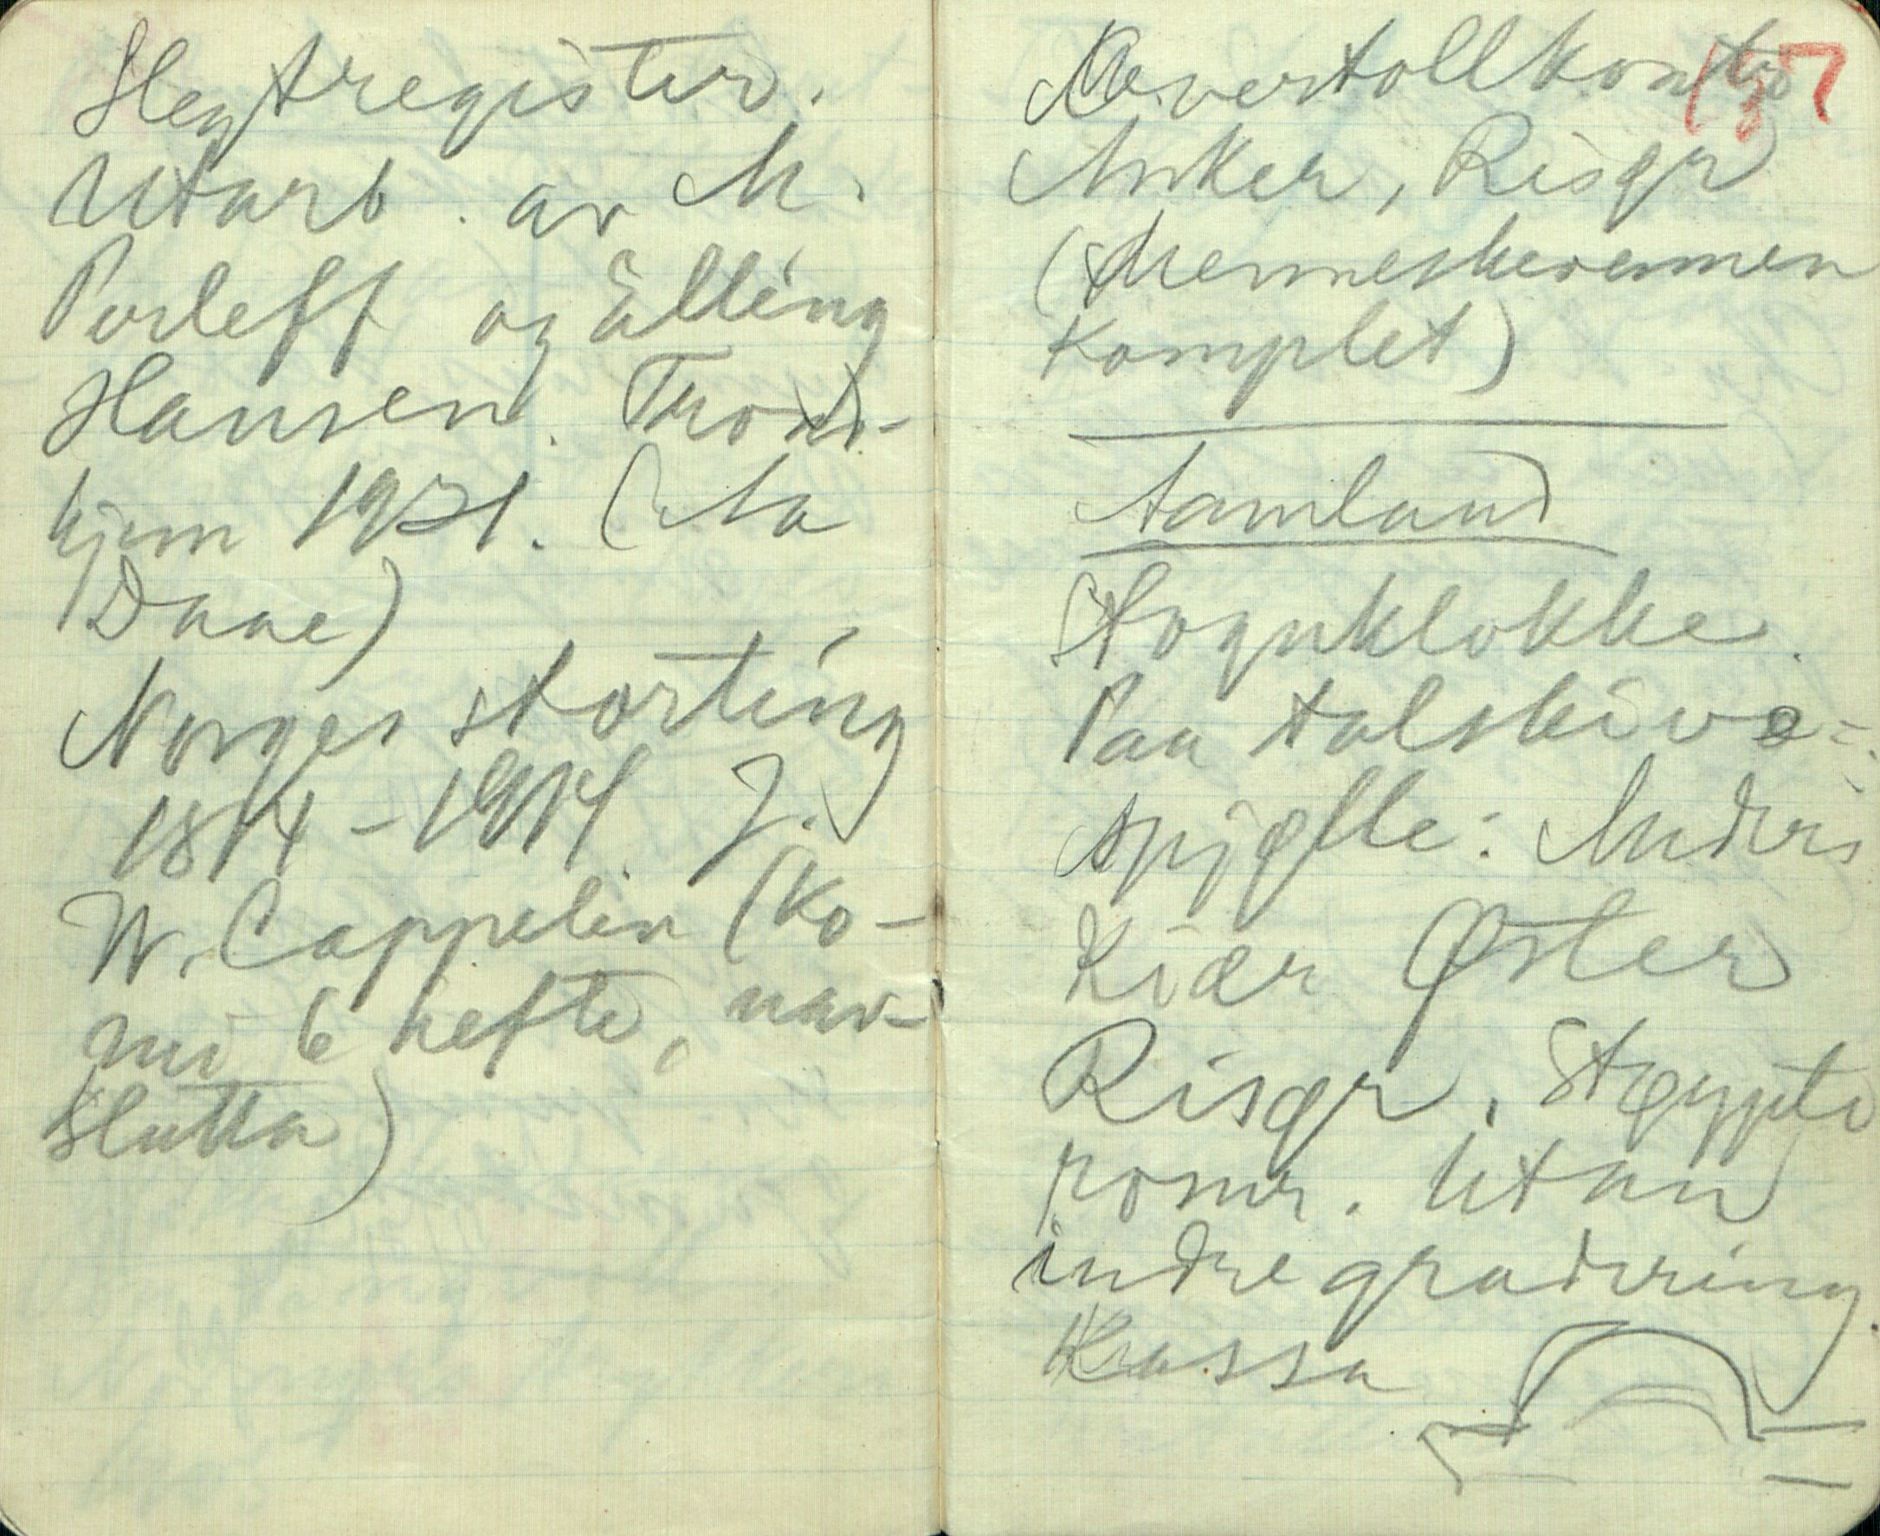 Slegtregister.
Utarb. av M.
Parleff og Elling
Hansen. Trond-
hjem 1921. (Aa
Daae)
Norges storting
1814-1914 J.
W. Cappelen (Ko-
me 6 hefte,
slutta)
157
Overtollkontro
Anker, Risør
(Menneskevennen
komplet)
Aamland
Stoguklokke.
Paa talskive-
spjælle: Anders
Kiær Øster
Risør. Stæypte
romr. Utan
indre gradering.
Kassa